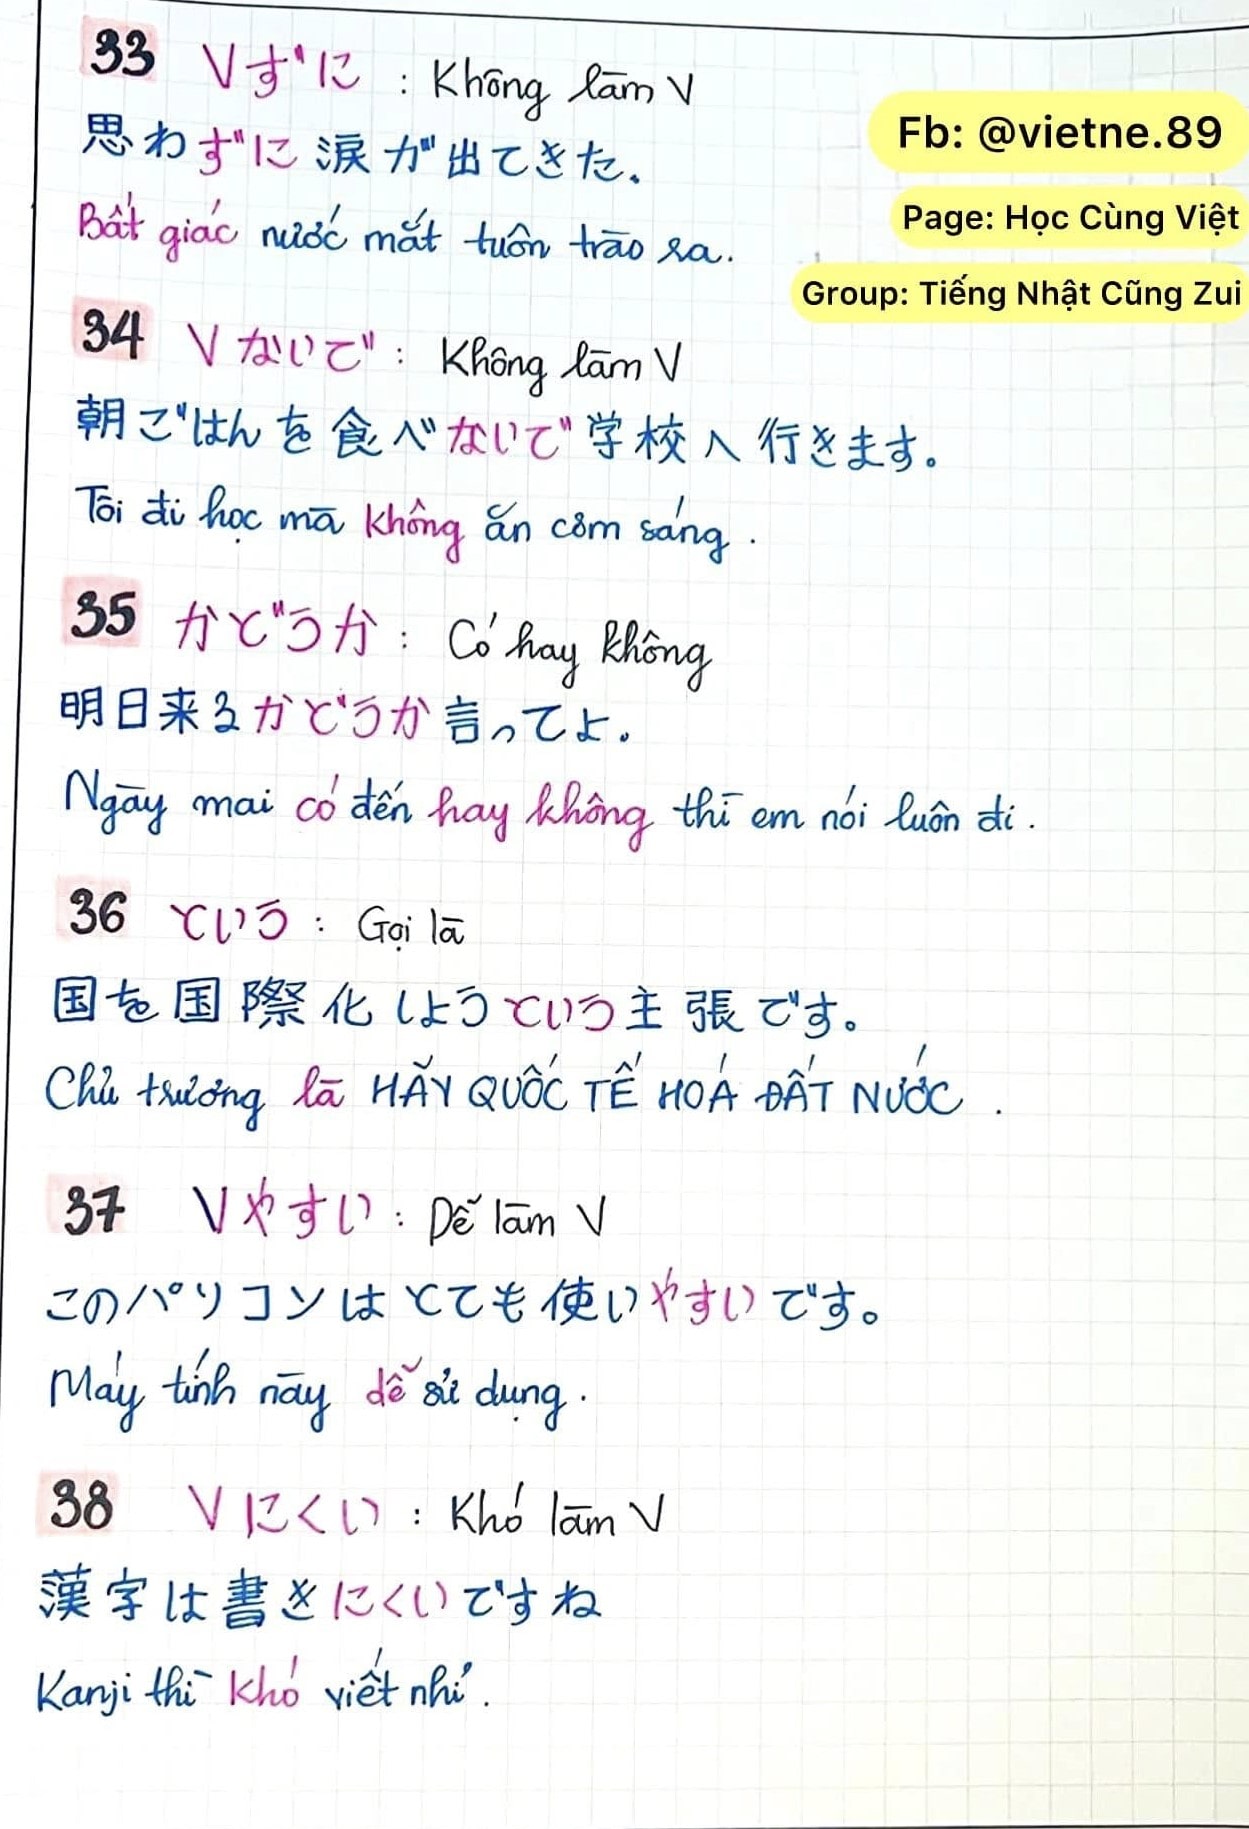 33 Vずに : Không làm V
思わずに涙が出てきた.
Bất giác nước mắt tuôn trào ra.
Fb: @vietne.89
Page: Học Cùng Việt
Group: Tiếng Nhật Cũng Zui
34 Vないで : Không làm V
朝ごはんを食べないで学校へ行きます。
Tôi đi học mà không ăn cơm sáng.
35 かどうか : Có hay không
明日来るかどうか言ってよ.
Ngày mai có đến hay không thì em nói luôn đi.
36 という : Gọi là
国を国際化しようという主張です。
Chủ trương là HÃY QUỐC TẾ HOÁ ĐẤT NƯỚC.
37 Vやすい : Dễ làm V
このパソコンはとても使いやすいです。
Máy tính này dễ sử dụng.
38 Vにくい : Khó làm V
漢字は書きにくいですね
Kanji thì khó viết nhỉ.